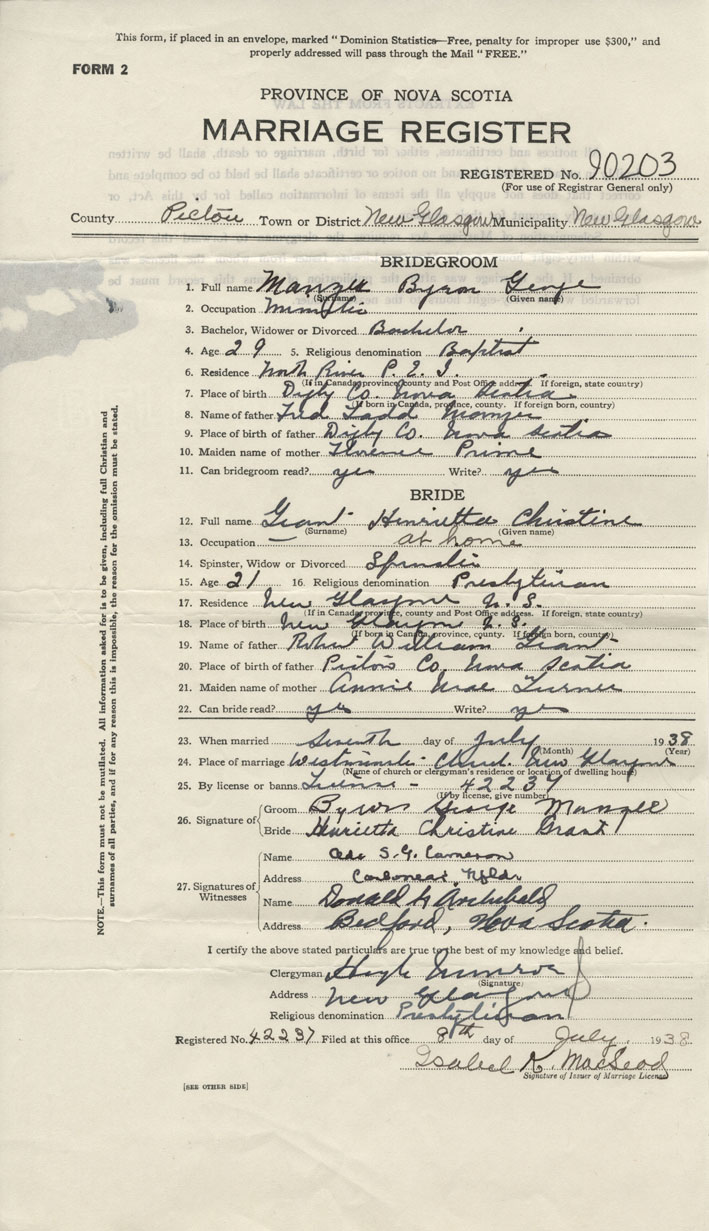 This form, if placed in an envelope, marked "Dominion Statistics—Free, penalty for improper use $300," and
properly addressed will pass through the Mail "FREE."
FORM 2
PROVINCE OF NOVA SCOTIA
MARRIAGE REGISTER
REGISTERED No. 90203
(For use of Registrar General only)
County Pictou Town or District New Glasgow Municipality New Glasgow
BRIDEGROOM
1. Full name Manzer Byron George
(Surname) (Given name)
2. Occupation Minister
3. Bachelor, Widower or Divorced Bachelor
4. Age 29 5. Religious denomination Baptist
6. Residence North River P. E. I.
(If in Canada, province, county and Post Office address. If foreign, state country)
7. Place of birth Digby Co. Nova Scotia
(If born in Canada, province, county. If foreign born, county)
8. Name of father Fred Ladd Manzer
9. Place of birth of father Digby Co. Nova Scotia
10. Maiden name of mother Florence Prime
11. Can bridegroom read? yes Write? yes
BRIDE
12. Full name Grant Henrietta Christine
(Surname) (Given name)
13. Occupation — at home
14. Spinster, Widow or Divorced Spinster
15. Age 21 16. Religious denomination Presbyterian
17. Residence New Glasgow N. S.
(If in Canada, province, county and Post Office address. If foreign, state country)
18. Place of birth New Glasgow N. S.
(If born in Canada, province, county. If foreign born, county)
19. Name of father Robert William Grant
20. Place of birth of father Pictou Co. Nova Scotia
21. Maiden name of mother Annie Mae Turner
22. Can bride read? yes Write? yes
23. When married Seventh day of July 1938
(Month) (Year)
24. Place of marriage Westminster Church New Glasgow
(Name of church or clergyman's residence or location of dwelling house)
25. By license or banns License - 42237
(If by license, give number)
26. Signature of Groom Byron George Manzer
Bride Henrietta Christine Grant
27. Signatures of Witnesses
Name S. G. Cameron
Address Carbonear, Nfld.
Name Donald Archibald
Address Bedford, Nova Scotia.
I certify the above stated particulars are true to the best of my knowledge and belief.
Clergyman Hugh Munroe
(Signature)
Address New Glasgow
Religious denomination Presbyterian
Registered No. 42237 Filed at this office 8th day of July 1938
Isabel K. MacLeod
Signature of Issuer of Marriage License
[SEE OTHER SIDE]
NOTE.—This form must not be mutilated. All information asked for is to be given, including full Christian and
surnames of all parties, and if for any reason this is impossible, the reason for the omission must be stated.